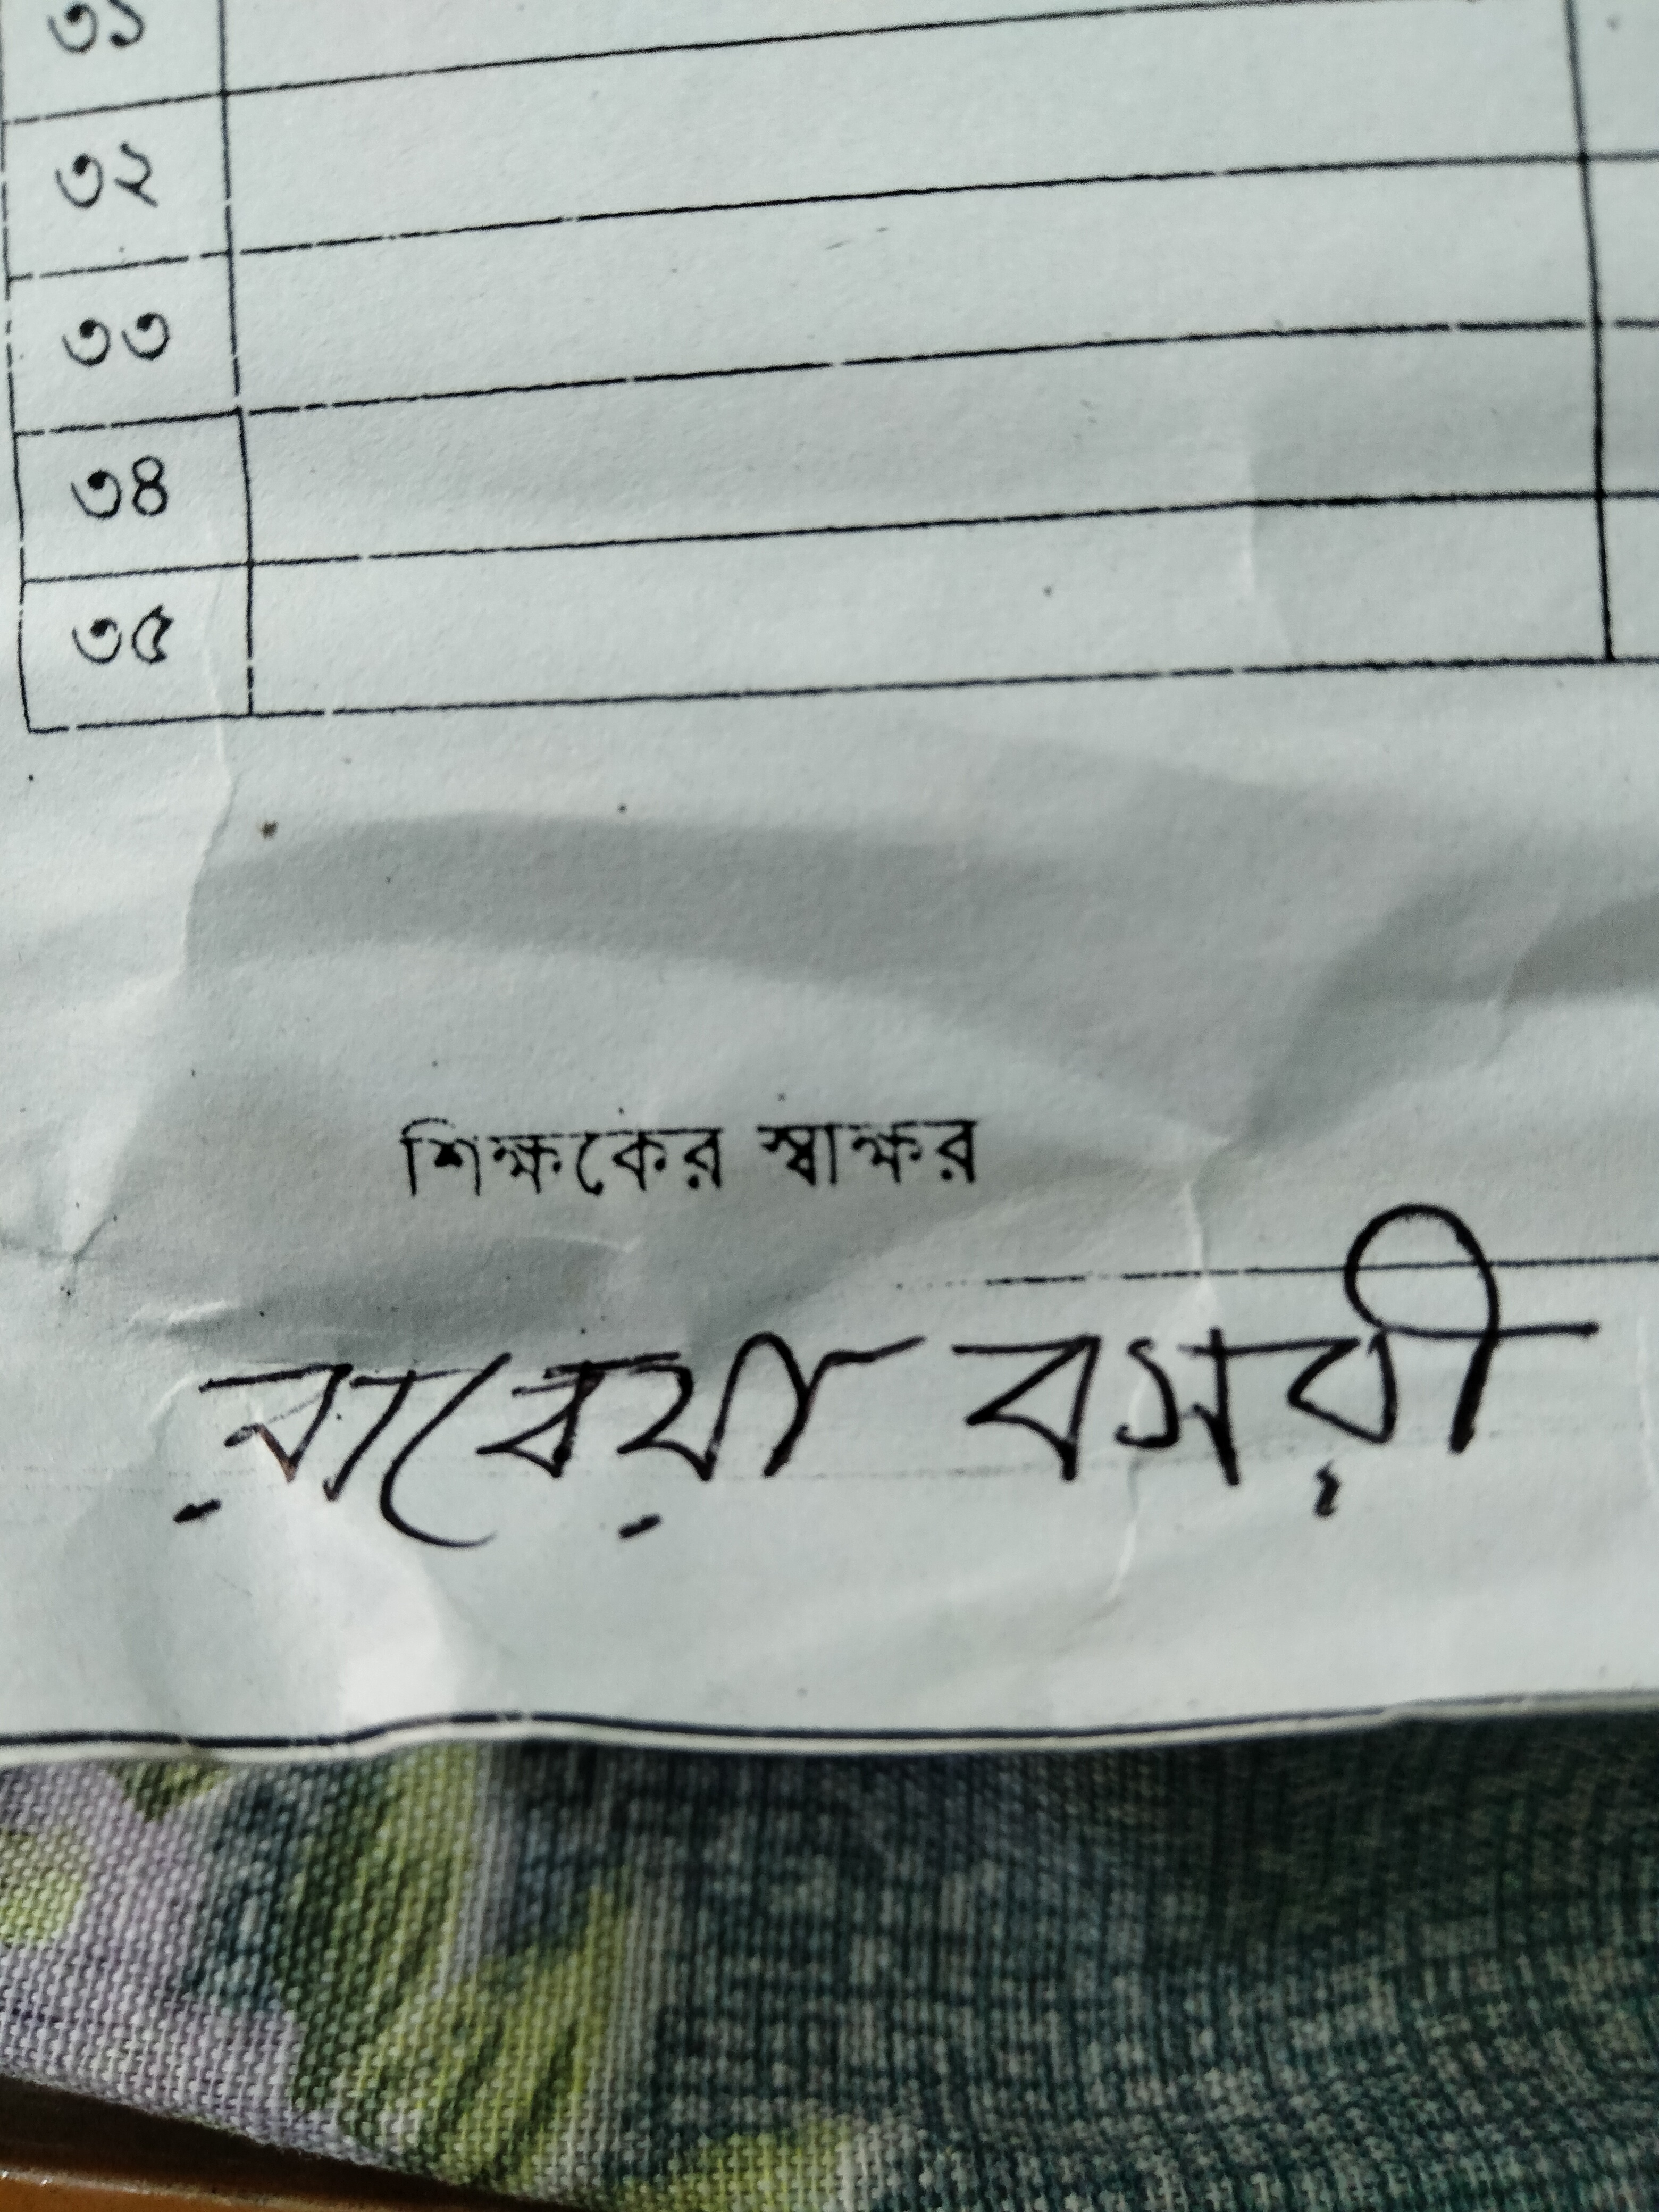 ৩১
৩২
৩৩
৩৪
৩৫
শিক্ষকের স্বাক্ষর
রাবেয়া বসরী